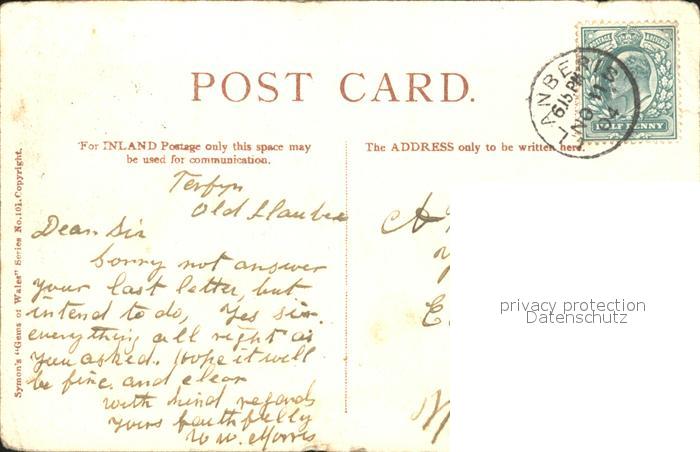 POST CARD.
LLANBERIS
6.15 PM
NO 11
04
HALF PENNY
For INLAND Postage only this space may
be used for communication.
The ADDRESS only to be written here.
Symon's "Gems of Wales" Series No.101. Copyright.
Terfyn
Old Llanber
Dear Sir
Sorry not answer
your last letter, but
intend to do, Yes sir.
everything all right as
you asked. hope it will
be fine and clear
with kind regards
yours faithfully
W W. Morris
privacy protection
Datenschutz